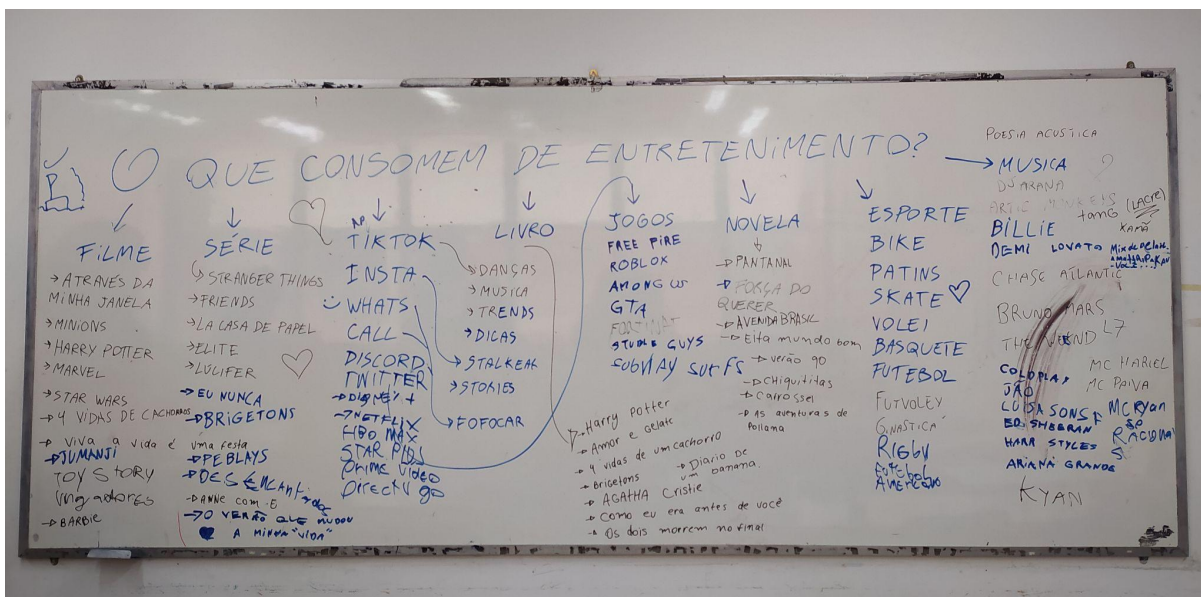 O QUE CONSOMEM DE ENTRETENIMENTO?
FILME
→ ATRAVÉS DA
MINHA JANELA
→ MINIONS
→ HARRY POTTER
→ MARVEL
→ STAR WARS
→ 4 VIDAS DE CACHORROS
→ VIVA A VIDA É UMA FESTA
→ JUMANJI
TOY STORY
Vingadores
→ BARBIE
SÉRIE
→ STRANGER THINGS
→ FRIENDS
→ LA CASA DE PAPEL
→ ELITE
→ LUCIFER
→ EU NUNCA
→ BRIGETONS
→ PEBLAYS
→ DESENCANT
→ ANNE COM E
→ O VERÃO QUE MUDOU
A MINHA "VIDA"
TIKTOK
INSTA
WHATS
CALL
DISCORD
TWITTER
DISNEY +
→ NETFLIX
HBO MAX
STAR PLUS
Prime video
DirecTV go
LIVRO
→ DANÇAS
→ MUSICA
→ TRENDS
→ DICAS
→ STALKEAR
→ STORIES
→ FOFOCAR
→ Harry Potter
→ Amor e gelato
→ 4 vidas de um cachorro
→ Brigetons
→ Diario DE
um banana.
→ AGATHA Cristie
→ Como eu era antes de você
→ Os dois morrem no final
JOGOS
FREE FIRE
ROBLOX
AMONG US
GTA
FORTINAT
STUBLE GUYS
SUBWAY SURFS
NOVELA
→ PANTANAL
→ FORÇA DO
QUERER
→ AVENIDA BRASIL
→ Eita mundo bom
→ verão 90
→ Chiquititas
→ Carrossel
→ As aventuras de
Poliana
ESPORTE
BIKE
PATINS
SKATE
VOLEI
BASQUETE
FUTEBOL
FUTVOLEY
GINASTICA
RIGBY
Futebol
Americano
POESIA ACUSTICA
→ MUSICA
DJ ARANA
ARTIC MONKEYS
(LACRE)
BILLIE
DEMI LOVATO
CHASE ATLANTIC
BRUNO MARS
THE WEEKND L7
MC HARIEL
COLDPLAY
MC PAIVA
JÃO
LUISA SONSA
MC Ryan
SP
ED SHEERAN
RACIONAIS
HARR STYLES
ARIANA GRANDE
KYAN